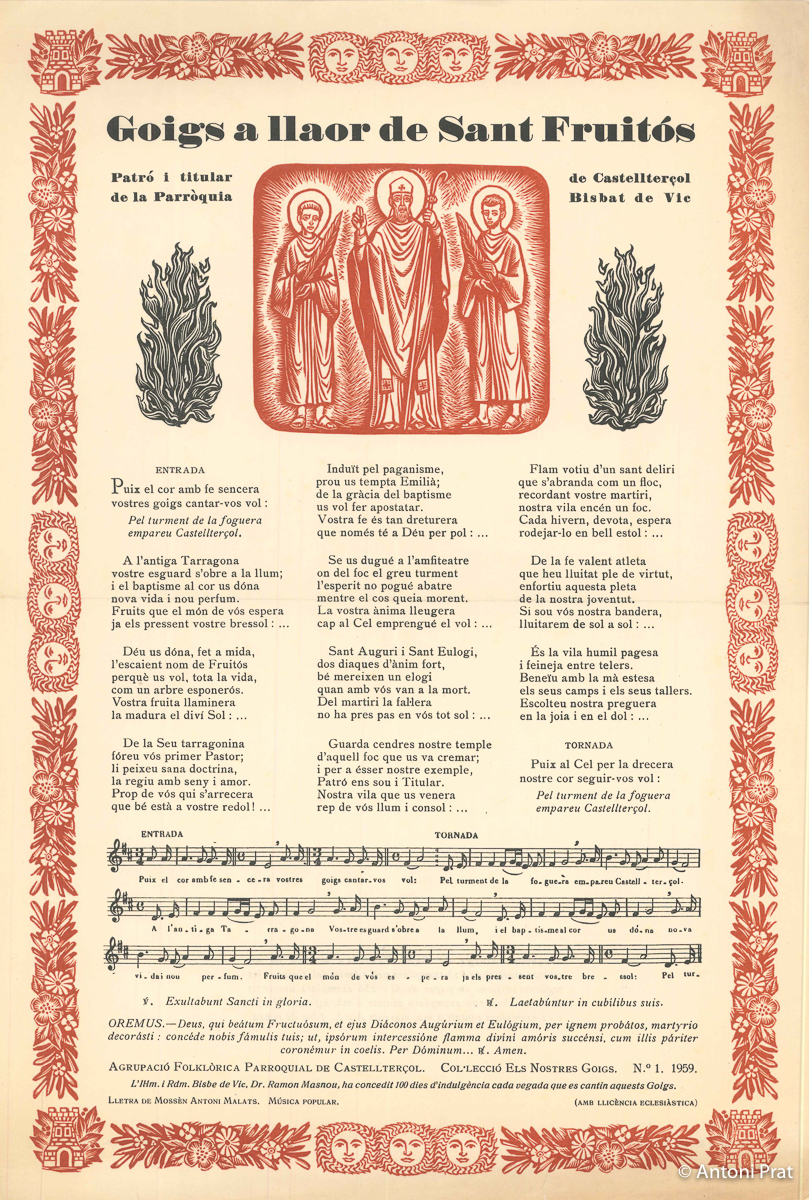 Goigs a llaor de Sant Fruitós
Patró i titular
de la Parròquia
de Castellterçol
Bisbat de Vic
ENTRADA
Puix el cor amb fe sencera
vostres goigs cantar-vos vol :
Pel turment de la foguera
empareu Castellterçol.
A l'antiga Tarragona
vostre esguard s'obre a la llum;
i el baptisme al cor us dóna
nova vida i nou perfum.
Fruits que el món de vós espera
ja els pressent vostre bressol : ...
Déu us dóna, fet a mida,
l'escaient nom de Fruitós
perquè us vol, tota la vida,
com un arbre esponerós.
Vostra fruita llaminera
la madura el diví Sol : ...
De la Seu tarragonina
fóreu vós primer Pastor;
li peixeu sana doctrina,
la regiu amb seny i amor.
Prop de vós qui s'arrecera
que bé està a vostre redol! ...
Induït pel paganisme,
prou us tempta Emilià;
de la gràcia del baptisme
us vol fer apostatar.
Vostra fe és tan dreturera
que només té a Déu per pol : ...
Se us dugué a l'amfiteatre
on del foc el greu turment
l'esperit no pogué abatre
mentre el cos queia morent.
La vostra ànima lleugera
cap al Cel emprengué el vol : ...
Sant Auguri i Sant Eulogi,
dos diaques d'ànim fort,
bé mereixen un elogi
quan amb vós van a la mort.
Del martiri la fal·lera
no ha pres pas en vós tot sol : ...
Guarda cendres nostre temple
d'aquell foc que us va cremar;
i per a ésser nostre exemple,
Patró ens sou i Titular.
Nostra vila que us venera
rep de vós llum i consol : ...
Flam votiu d'un sant deliri
que s'abranda com un floc,
recordant vostre martiri,
nostra vila encén un foc.
Cada hivern, devota, espera
rodejar-lo en bell estol : ...
De la fe valent atleta
que heu lluitat ple de virtut,
enfortiu aquesta pleta
de la nostra joventut.
Si sou vós nostra bandera,
lluitarem de sol a sol : ...
És la vila humil pagesa
i feineja entre telers.
Beneïu amb la mà estesa
els seus camps i els seus tallers.
Escolteu nostra preguera
en la joia i en el dol : ...
TORNADA
Puix al Cel per la drecera
nostre cor seguir-vos vol :
Pel turment de la foguera
empareu Castellterçol.
ENTRADA TORNADA
Puix el cor amb fe sen - ce - ra vostres goigs cantar-vos vol: Pel turment de la fo-gue-ra em-pa-reu Castell - ter - çol.
A l'an - ti - ga Ta - rra - go - na Vos-tre es guard s'obre a la llum, i el bap - tis-me al cor us dó - na no-va
vi - da i nou per - fum. Fruits que el món de vós es - pe - ra ja els pres - sent vos-tre bre - ssol: Pel tur-
℣. Exultabunt Sancti in gloria. ℟. Laetabúntur in cubílibus suis.
OREMUS.—Deus, qui beátum Fructuósum, et ejus Diáconos Augúrium et Eulógium, per ignem probátos, martyrio
decorásti : concéde nobis fámulis tuis; ut, ipsórum intercessióne flamma divini amóris succénsi, cum illis páriter
coronémur in coelis. Per Dóminum... ℟. Amen.
AGRUPACIÓ FOLKLÒRICA PARROQUIAL DE CASTELLTERÇOL. COL·LECCIÓ ELS NOSTRES GOIGS. N.º 1. 1959.
L'Il·lm. i Rdm. Bisbe de Vic, Dr. Ramon Masnou, ha concedit 100 dies d'indulgència cada vegada que es cantin aquests Goigs.
LLETRA DE MOSSÈN ANTONI MALATS. MÚSICA POPULAR. (AMB LLICÈNCIA ECLESIÀSTICA)
© Antoni Prat